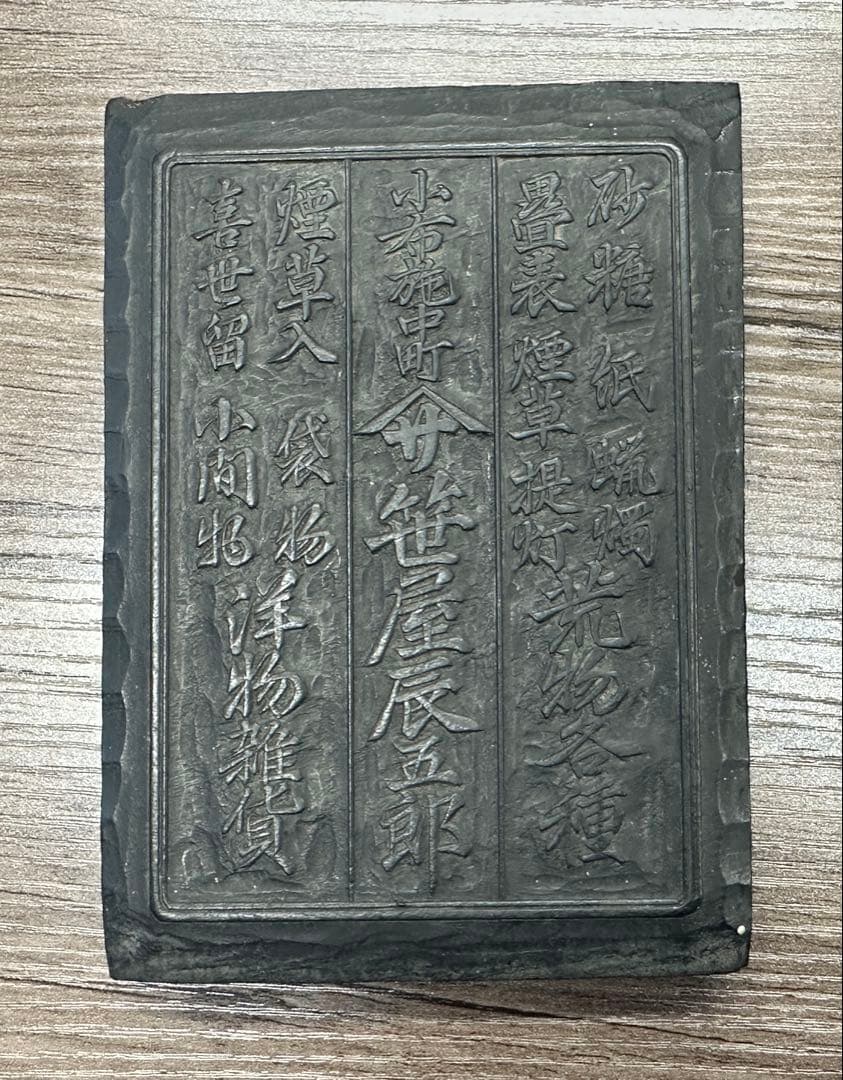 砂糖 紙 蝋燭
畳表 煙草 提灯
荒物各種
小布施中町
サ
笹屋辰五郎
煙草入 袋物
喜世留 小間物
洋物雑貨